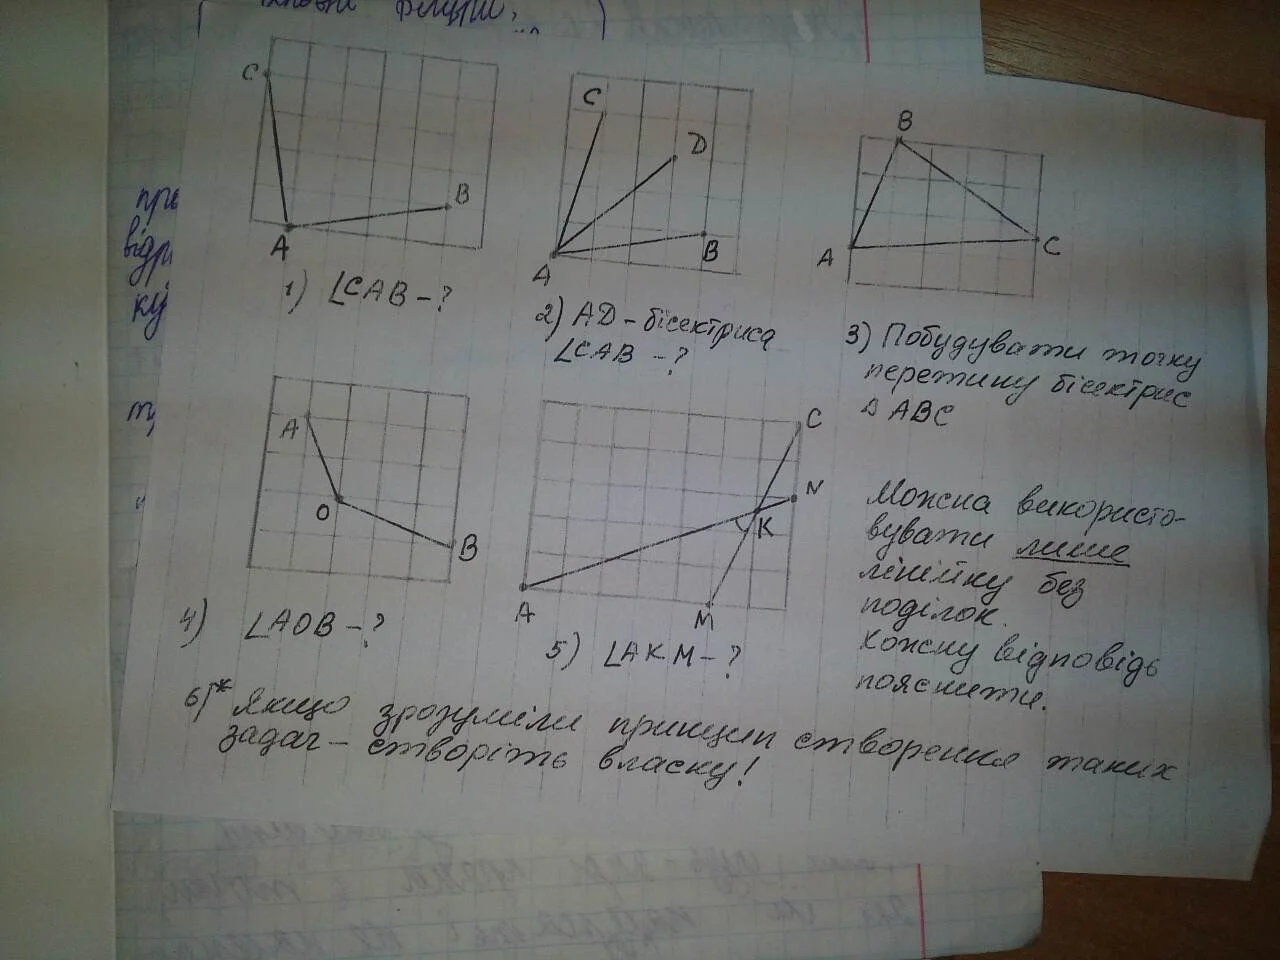 C
B
A
1) ∠CAB – ?
C
D
B
A
2) AD – бісектриса
∠CAB – ?
B
A
C
3) Побудувати точку
перетину бісектрис
△ ABC
A
O
B
4) ∠AOB – ?
C
N
K
A
M
5) ∠AKM – ?
Можна використо-
вувати лише
лінійку без
поділок.
Кожну відповідь
пояснити.
6)* Якщо зрозуміли принцип створення таких
задач – створіть власну!